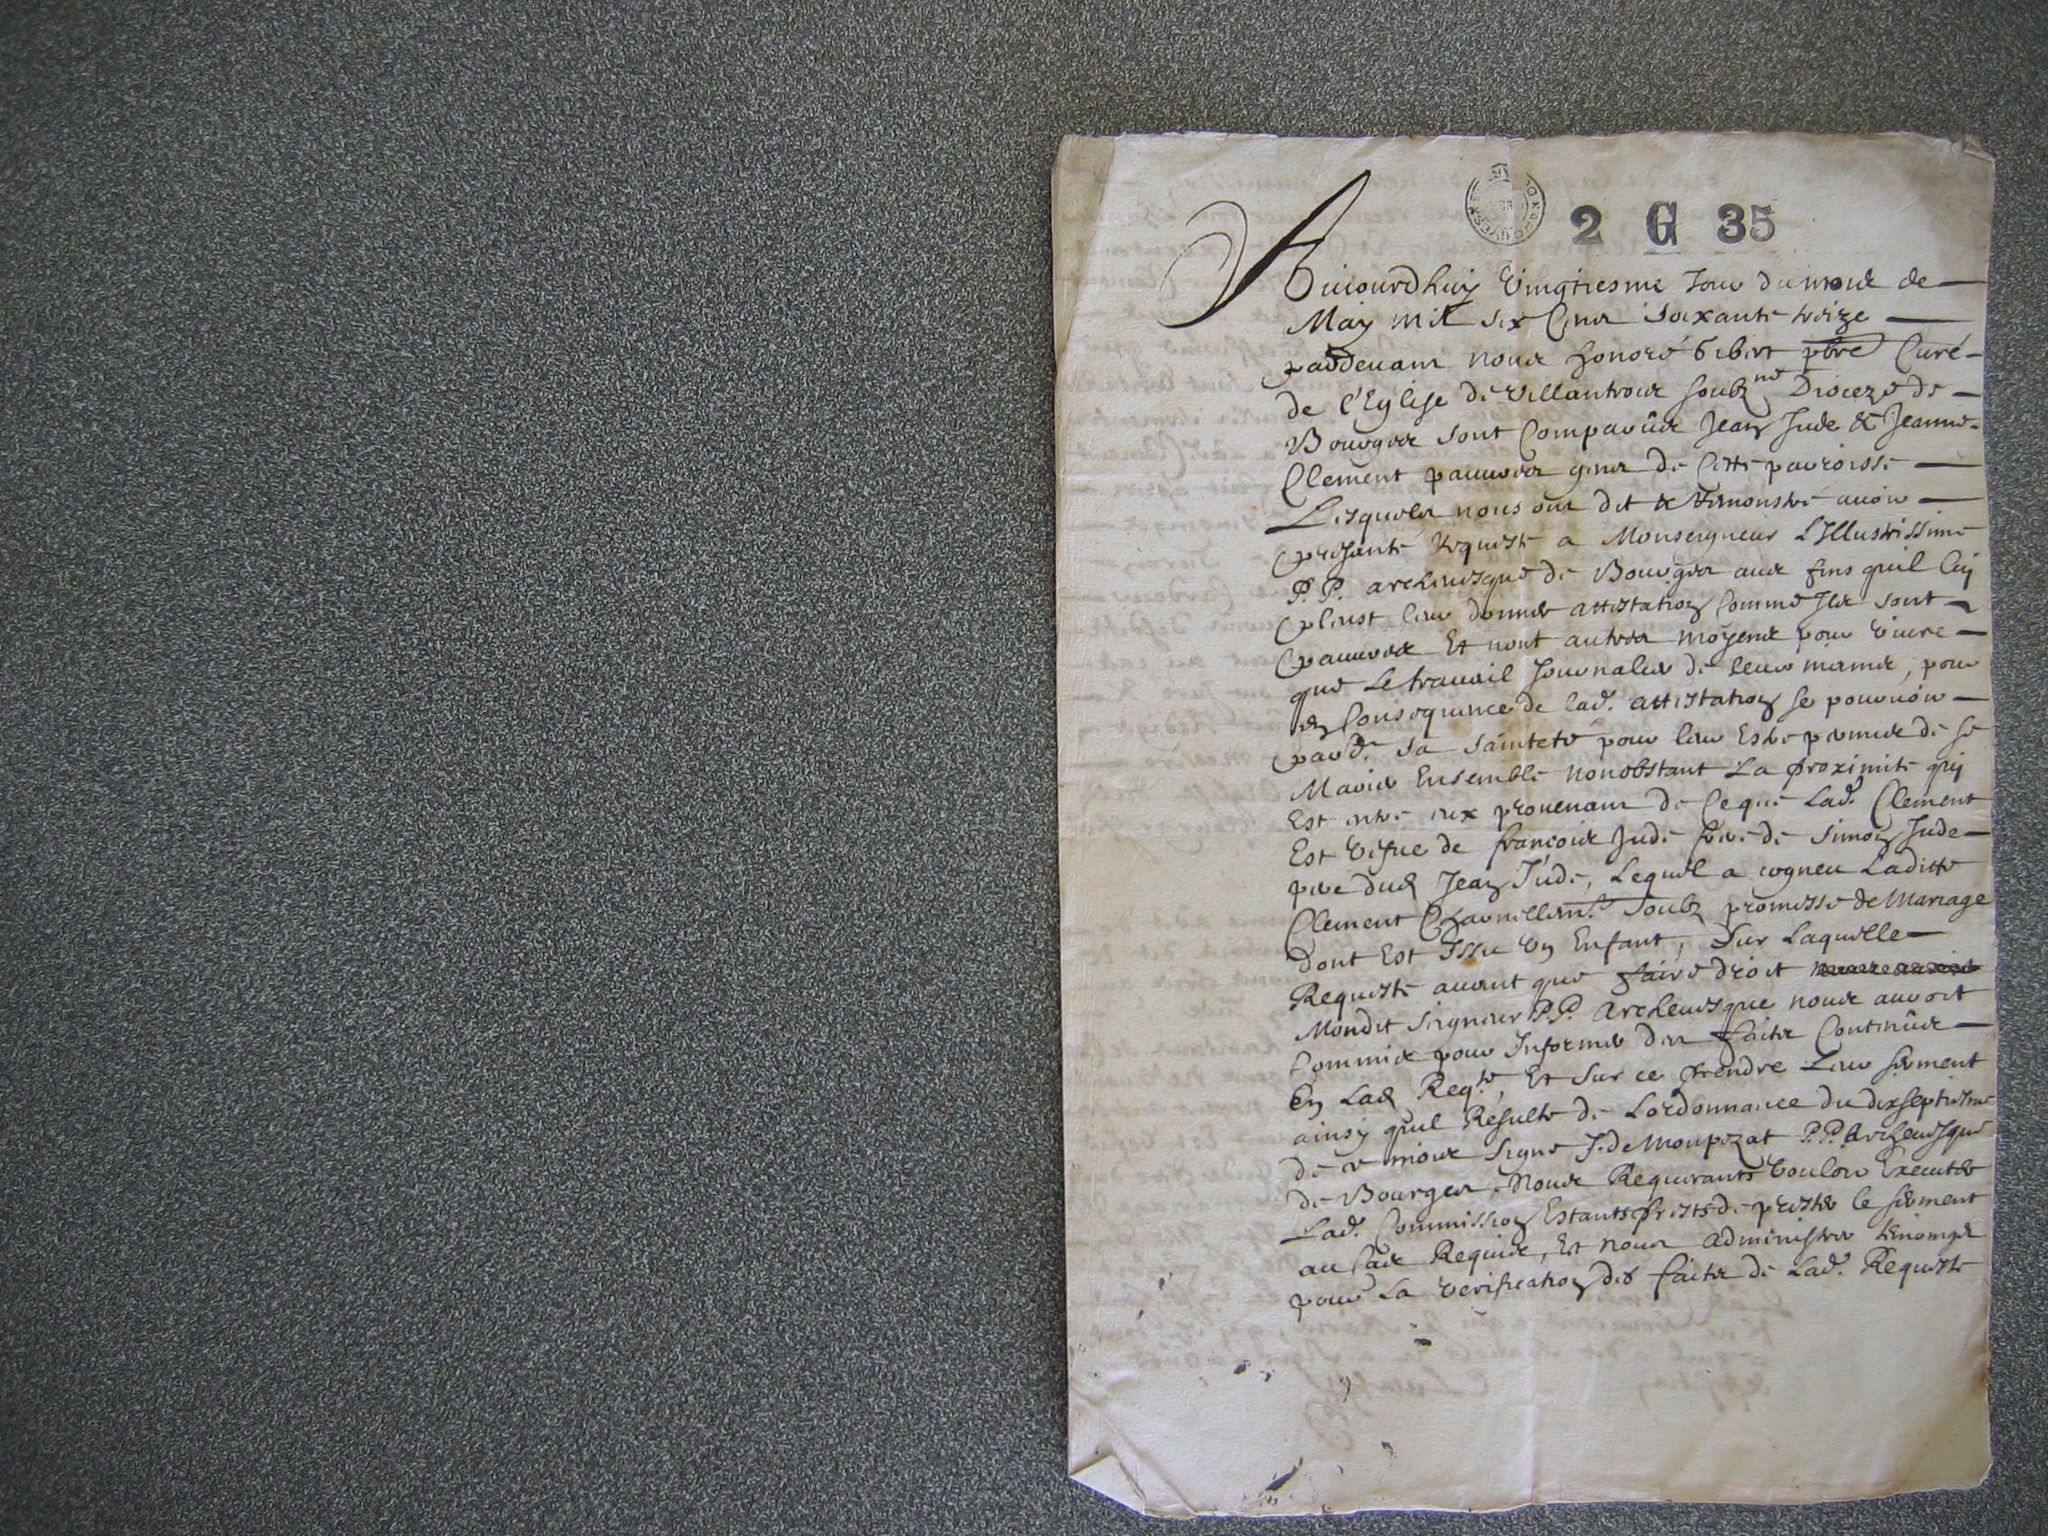 2 G 35
Aujourdhuy Vingtiesme Jour du mois de
May mil six Cens soixante treize
pardevant nous honoré Gibert pbre Curé
de l'Eglise de Villantrois soubzné Dioceze de
Bourges sont Comparûs Jean Jude & Jeanne
Clement pauvres gens de Cette parroisse
Lesquels nous ont dit & remonstré avoir
presanté requeste a Monseigneur L'Illustrissime
P. P. archevesque de Bourges aux fins quil luy
pleust leur donner attestation Comme Ils sont
pauvres Et nont autres moyens pour vivre
que Le travail Journalier de leurs mains, pour
en Consequence de lad. attestation se pourvoir
pard. sa sainteté pour leur Estre permis de se
Marier Ensemble nonobstant La proximité qui
Est entre eux provenant de Ce que Lad. Clement
Est vefve de françois Jude frere de Simon Jude
pere dud Jean Jude, Lequel a cogneu Laditte
Clement Charnellemt. soubz promesse de Mariage
Dont Est Issu un Enfant, Sur Laquelle
Requeste avant que faire droit
Mondit Seigneur P.P. Archevesque nous auroit
Commis pour Informer des faits Contenûs
En Lad Reqte, Et sur ce prendre Leur serment
ainsy quil Resulte de Lordonnance du dixseptiesme
de ce mois signé J. de Monpezat P.P. Archevesque
de Bourges. Nous Requerants vouloir Executer
Lad. Commission Estants prests de prester le serment
au Cas Requis, Et nous administrer temoings
pour La verification des faits de Lad. Requeste